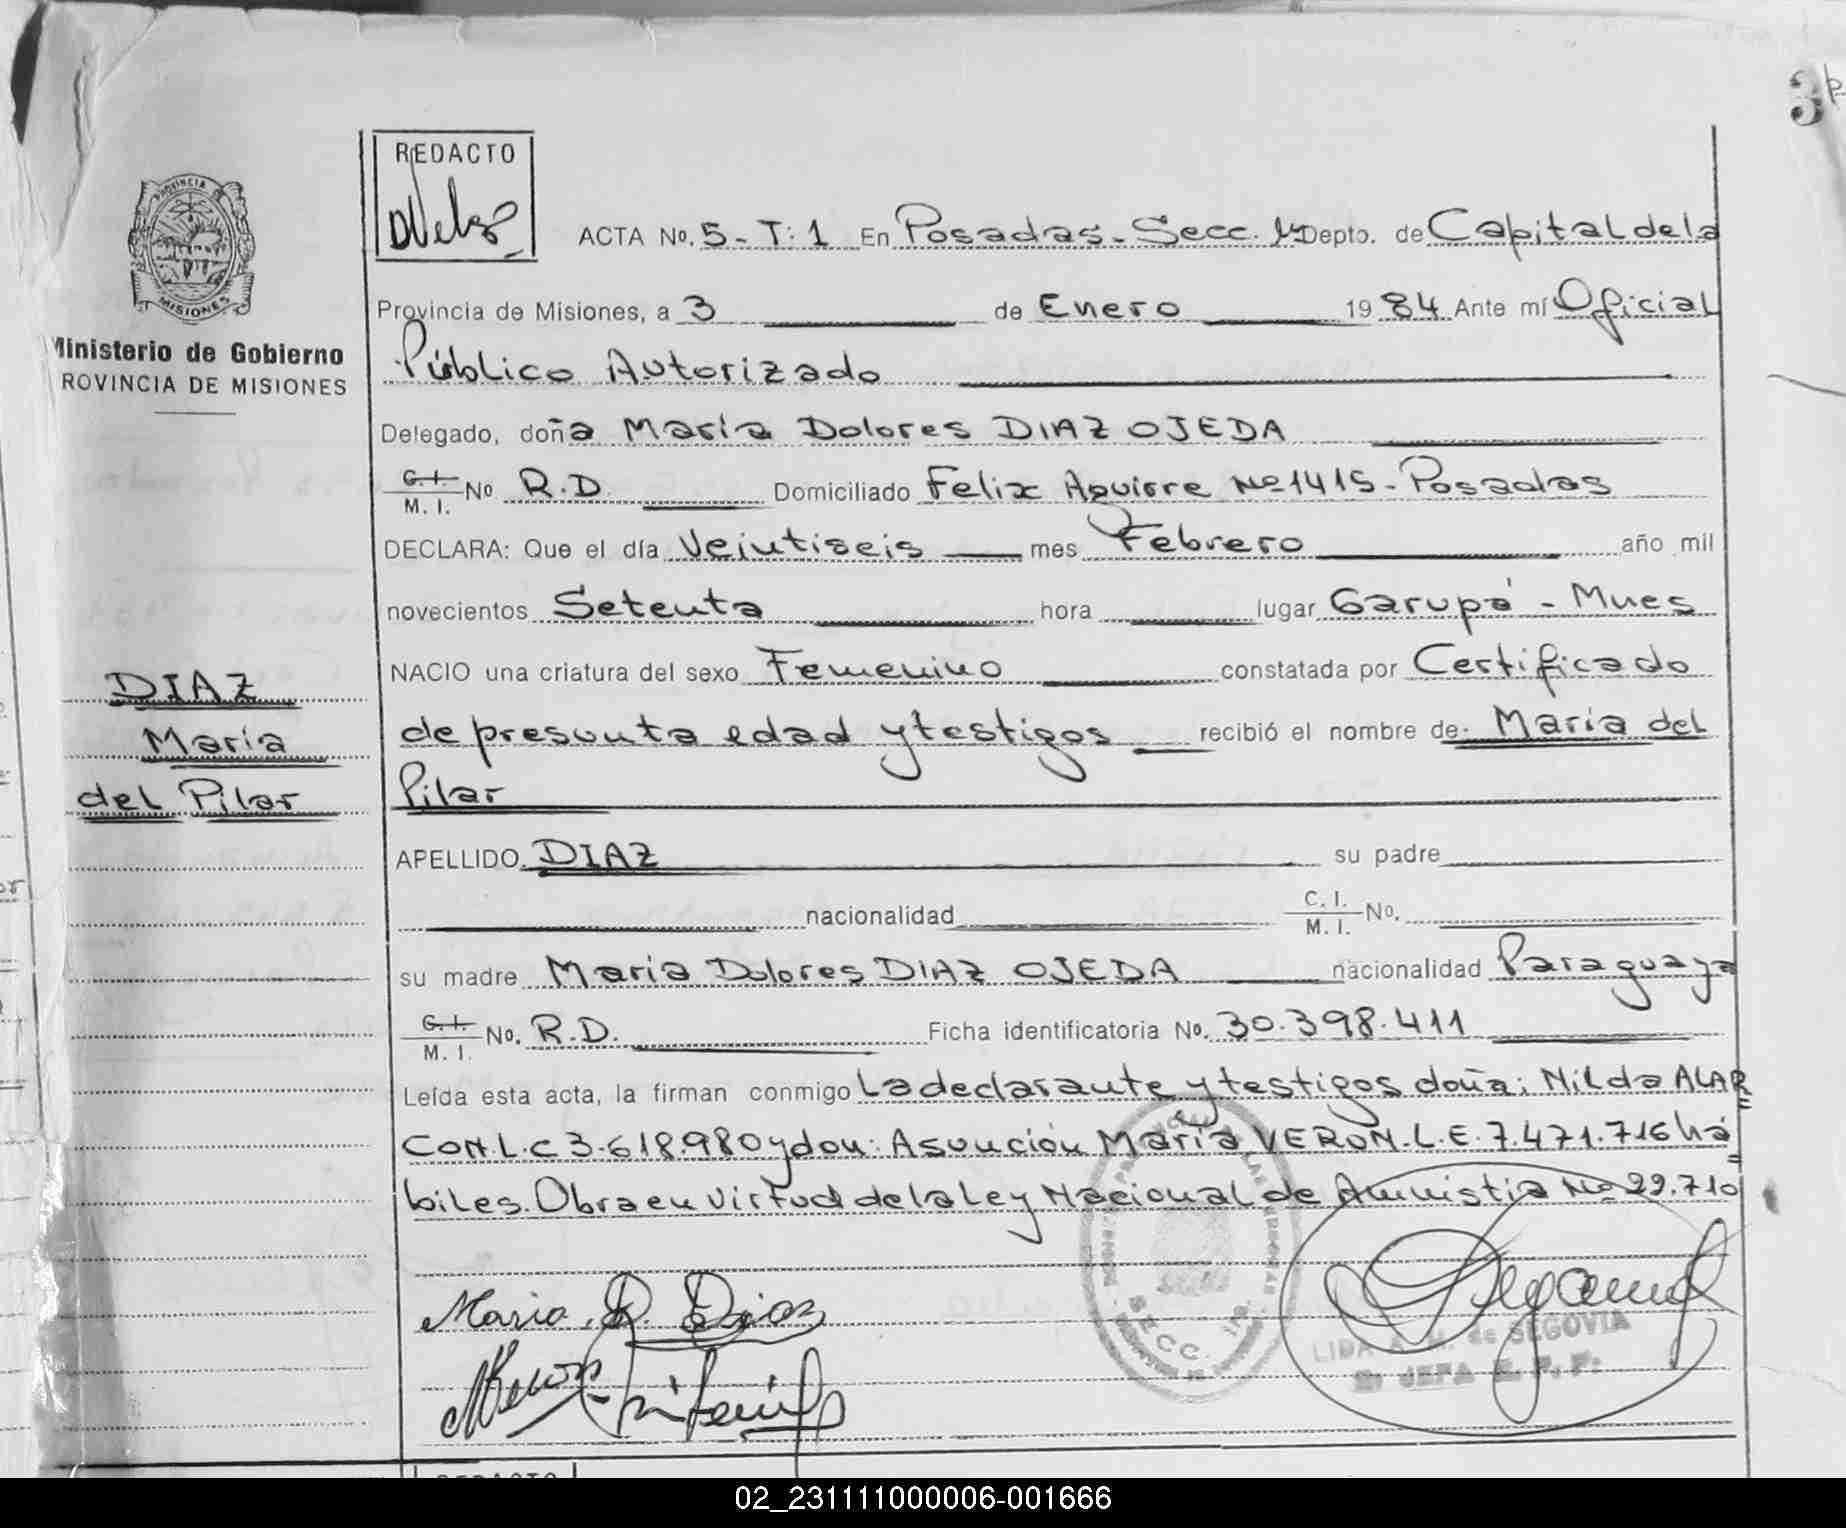 REDACTO
PROVINCIA
MISIONES
ACTA No. 5 - T: 1 En Posadas - Secc. Depto. de Capital de la
Provincia de Misiones, a 3 de Enero 1984 Ante mí Oficial
Ministerio de Gobierno
ROVINCIA DE MISIONES
Público Autorizado
Delegado, doña María Dolores DIAZ OJEDA
C.I. M.I. No R.D. Domiciliado Felix Aguirre Nº 1415 - Posadas
DECLARA: Que el día Veintiseis mes Febrero año mil
novecientos Setenta hora lugar Garupá - Mnes
NACIO una criatura del sexo Femenino constatada por Certificado
DIAZ
María
del Pilar
de presunta edad y testigos recibió el nombre de María del
Pilar
APELLIDO DIAZ su padre
nacionalidad C.I. M.I. No.
su madre María Dolores DIAZ OJEDA nacionalidad Paraguaya
C.I. M.I. No. R.D. Ficha identificatoria No. 30.398.411
Leída esta acta, la firman conmigo La declarante y testigos doña: Nilda ALAR
CON.L.C 3.618.980 y don: Asunción María VERON.L.E.7.471.716 há
biles. Obra en virtud de la Ley Nacional de Amnistia Nº 22.710
María D. Diaz
SECC.
LIDA A. M. de SEGOVIA
JEFA
REDACTO
02_231111000006-001666